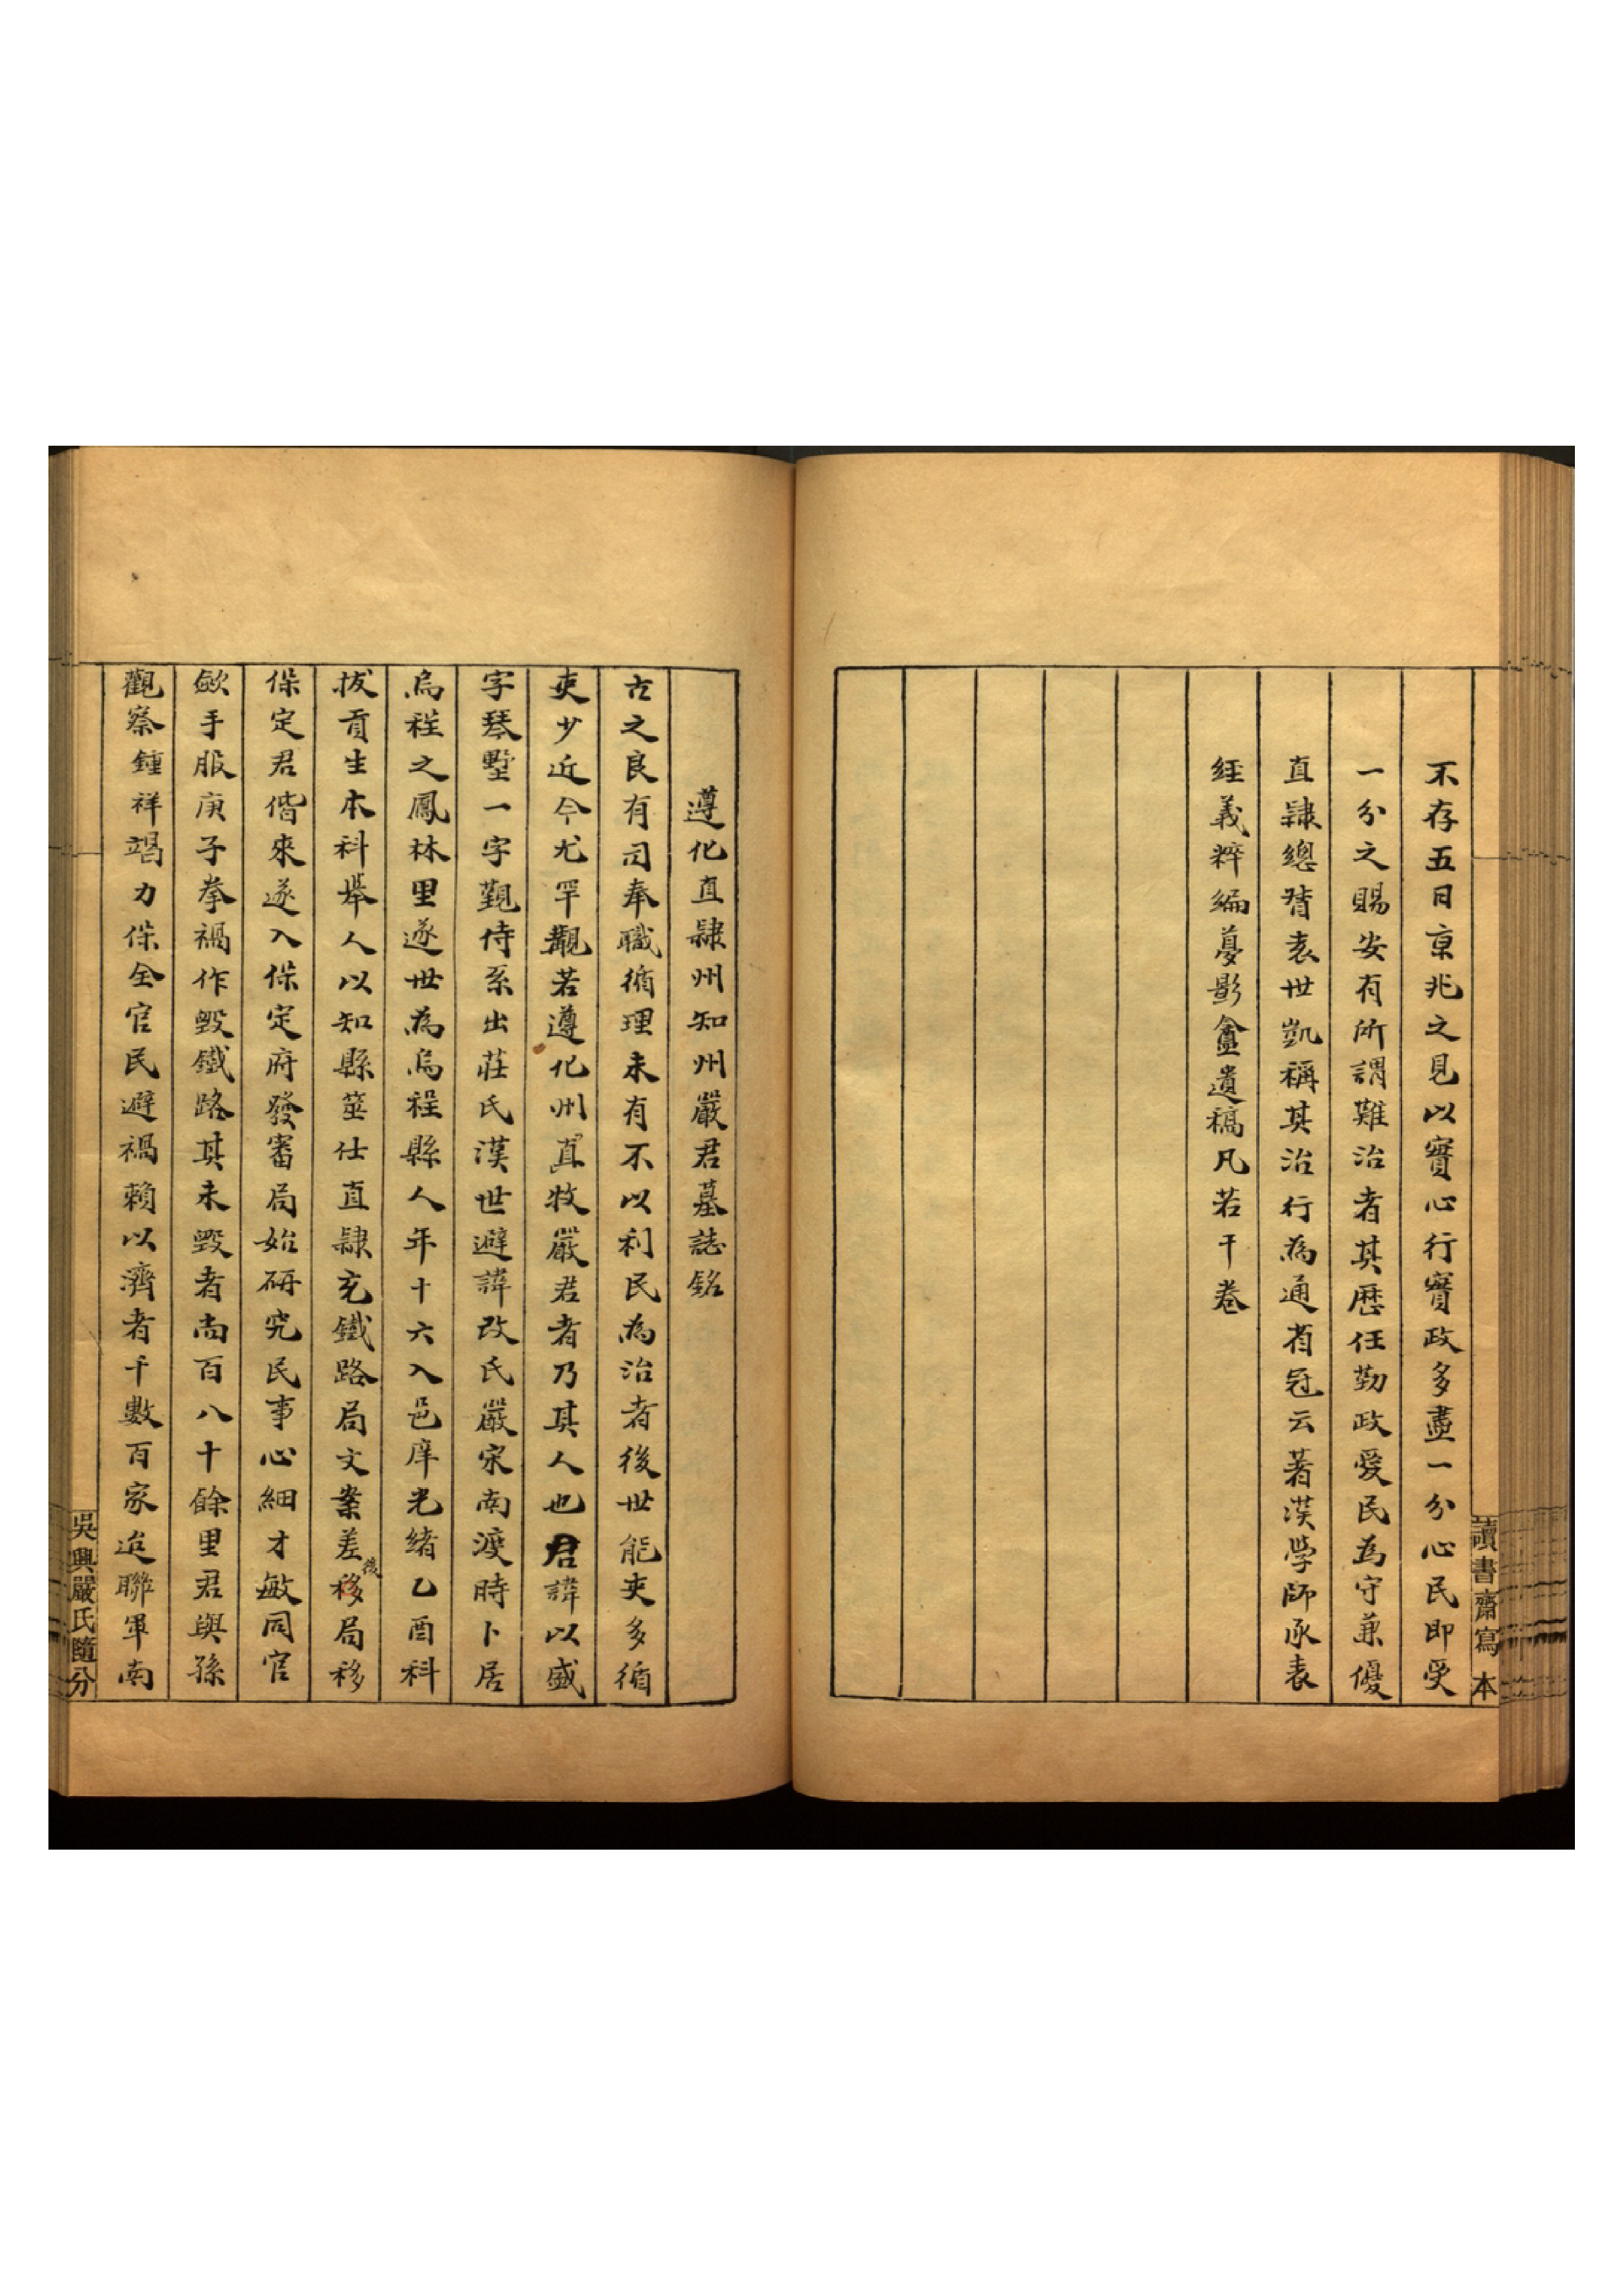 讀書齋寫本
不存五日京兆之見以實心行實政多盡一分心民即受
一分之賜安有所謂難治者其歷任勤政愛民為守兼優
直隸總督袁世凱稱其治行為通省冠云著漢學師承表
經義粹編夢影盦遺稿凡若干卷
遵化直隸州知州嚴君墓誌銘
古之良有司奉職循理未有不以利民為治者後世能吏多循
吏少近今尤罕觀若遵化州直牧嚴君者乃其人也君諱以盛
字琴墅一字覲侍系出莊氏漢世避諱改氏嚴宋南渡時卜居
烏程之鳳林里遂世為烏程縣人年十六入邑庠光緒乙酉科
拔貢生本科舉人以知縣筮仕直隸充鐵路局文案差後移局移
保定君偕來遂入保定府發審局始研究民事心細才敏同官
歛手服庚子拳禍作毀鐵路其未毀者尚百八十餘里君與孫
觀察鍾祥竭力保全官民避禍賴以濟者千數百家迨聯軍南
吳興嚴氏隨分